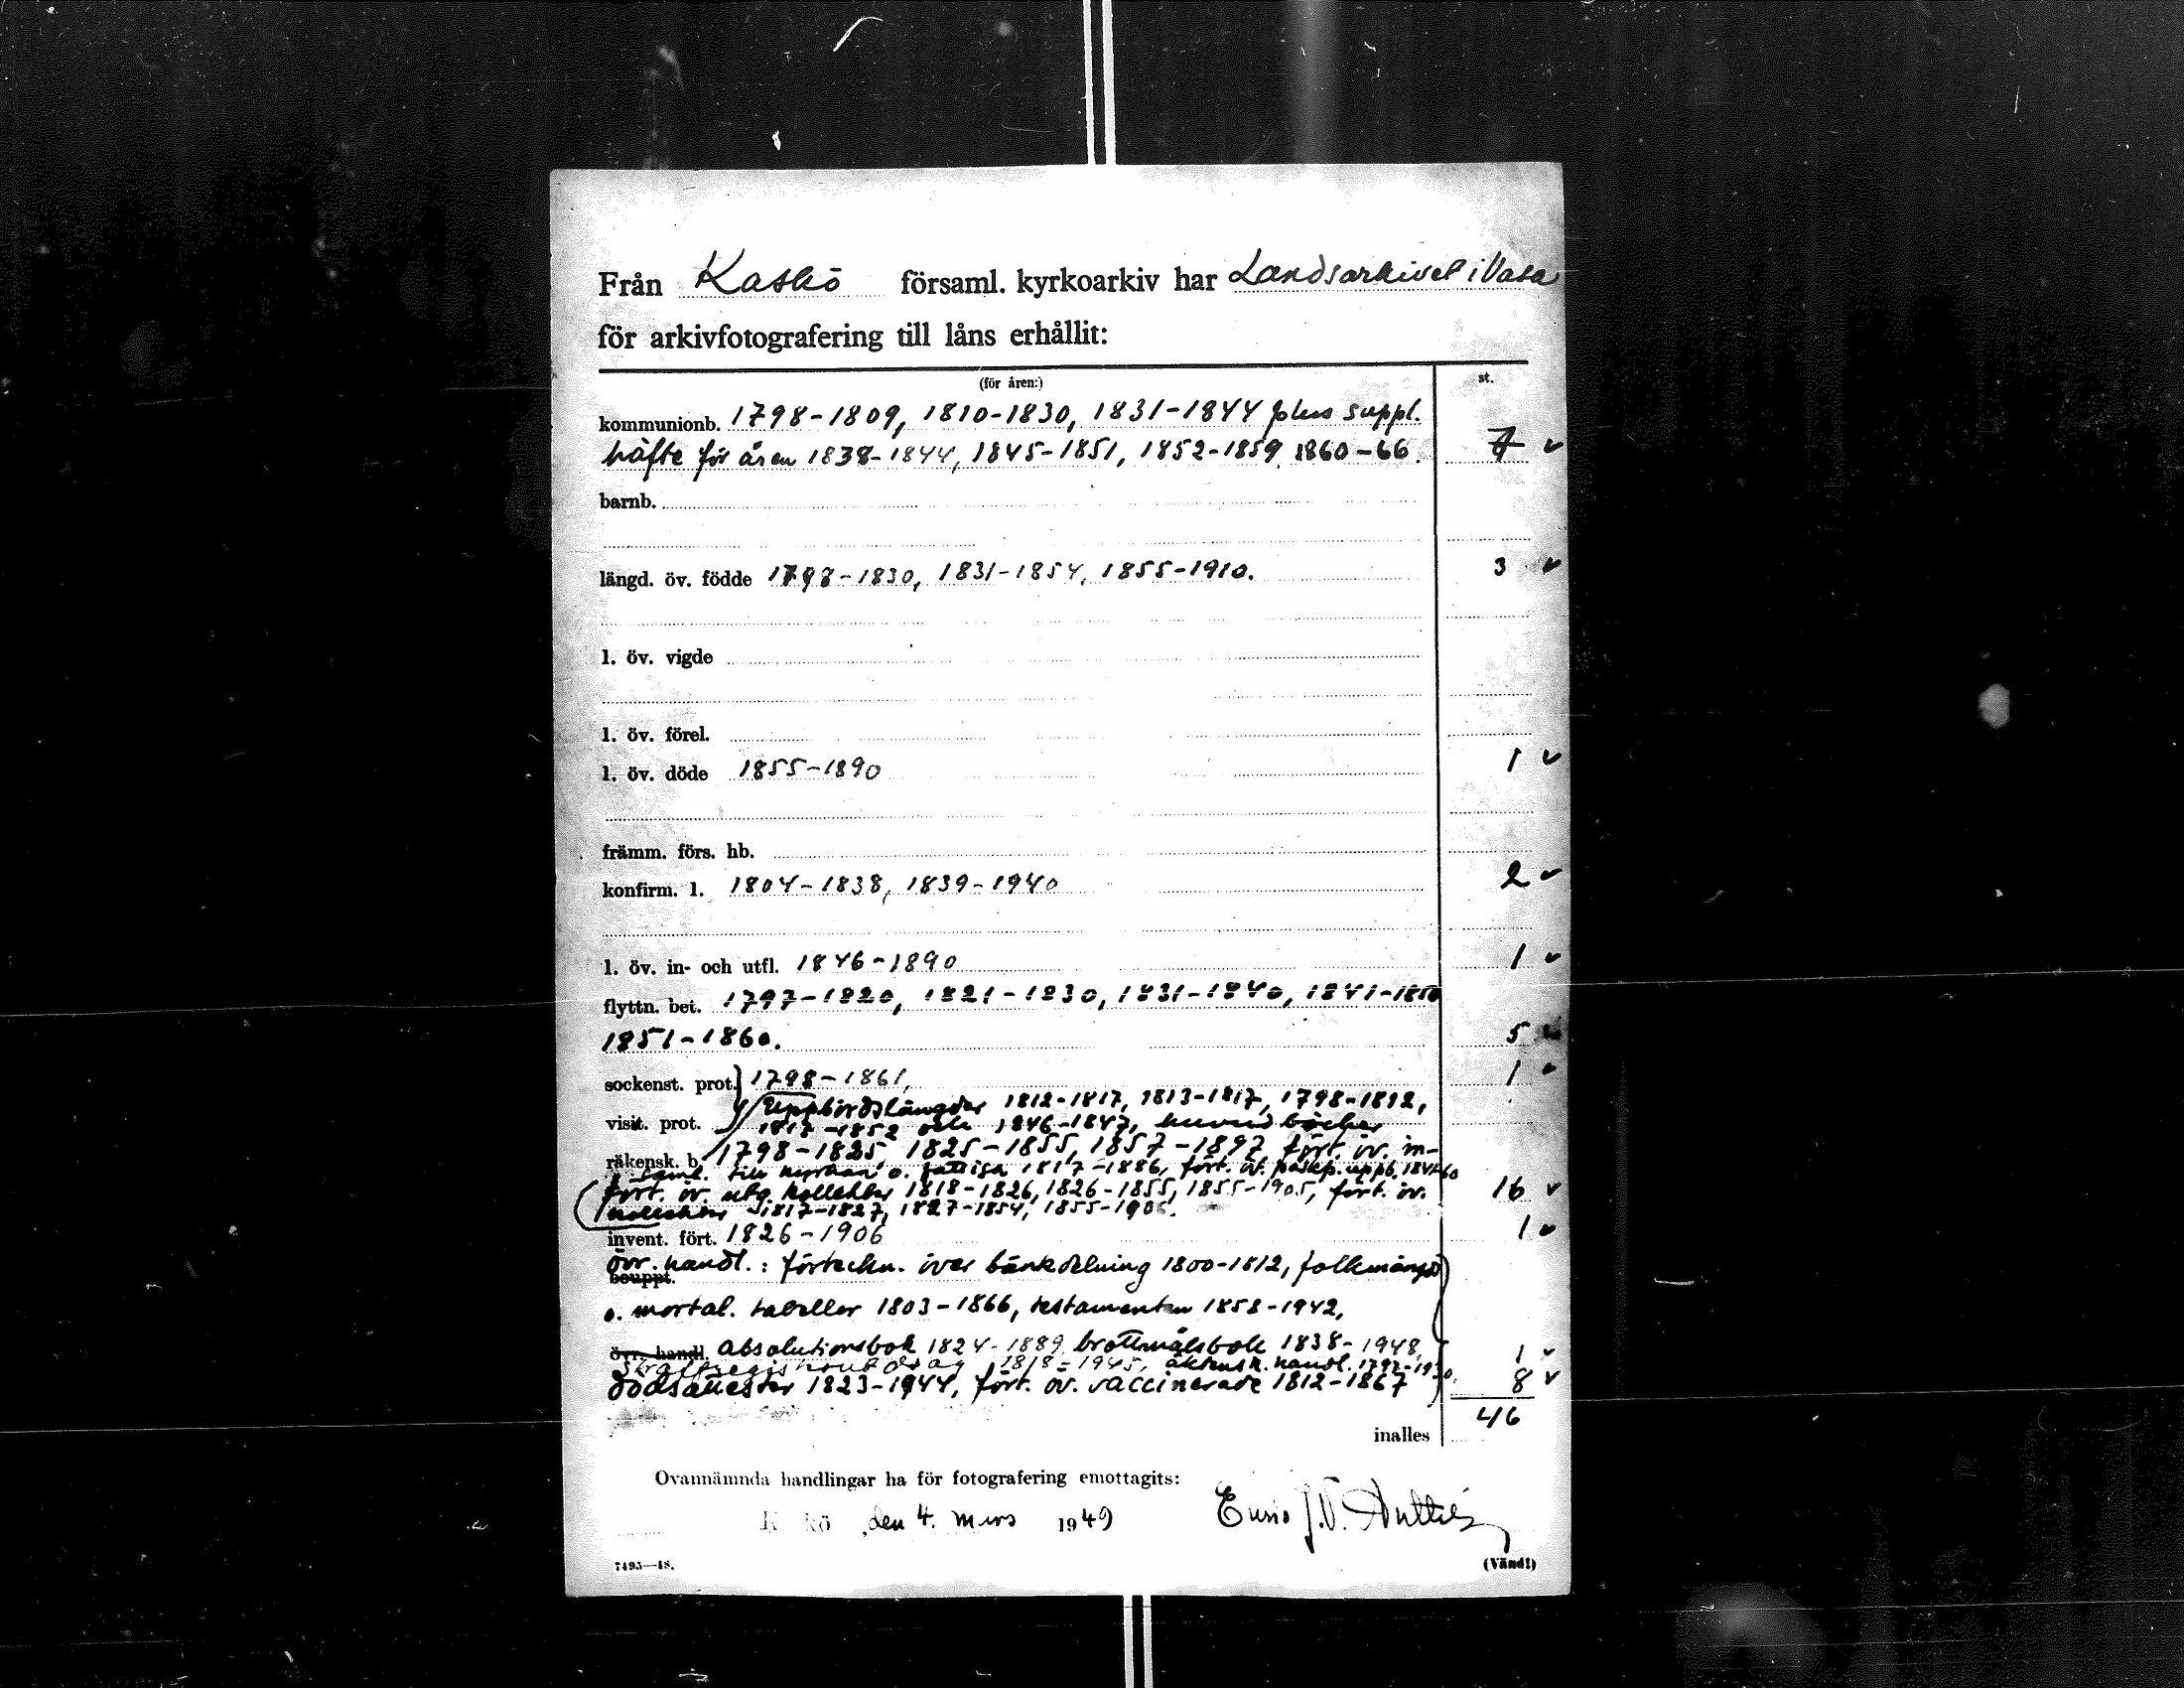 Från Kaskö församl. kyrkoarkiv har Landsarkivet i Vasa
för arkivfotografering till låns erhållit:
(för åren:) st.
kommunionb. 1798-1809, 1810-1830, 1831-1844 plus suppl.
häfte för åren 1838-1844, 1845-1851, 1852-1859, 1860-66. 7
barnb.
längd. öv. födde 1798-1830, 1831-1854, 1855-1910. 3
l. öv. vigde
l. öv. förel.
l. öv. döde 1855-1890 1
främm. förs. hb.
konfirm. l. 1804-1838, 1839-1940 2
l. öv. in- och utfl. 1846-1890 1
flyttn. bet. 1797-1820, 1821-1830, 1831-1840, 1841-1850
1851-1860. 5
sockenst. prot. 1798-1861, 1
Uppbördslängder 1812-1817, 1813-1817, 1798-1812,
visit. prot. 1817-1852 och 1846-1847, huvudböcker
räkensk. b. 1798-1825 1825-1855, 1857-1897 fört. öv. in-
saml. till kyrkan o. fattiga 1817-1886, fört. öv. påskp. uppb.
fört. öv. utg. kollekter 1818-1826, 1826-1855, 1855-1905, fört. öv. 16
kollekter 1817-1827, 1827-1854, 1855-1906.
invent. fört. 1826-1906 1
övr. handl.: förteckn. över bänkdelning 1800-1812, folkmängd
bouppt.
o. mortal. tabeller 1803-1866, testamenten 1858-1942,
övr. handl. Absolutionsbok 1824-1889, brottmålsbok 1838-1948, 1
straffregisterutdrag 1818-1945, äktensk. handl.
dödsattester 1823-1944, fört. öv. vaccinerade 1812-1867 8
46
inalles
Ovannämnda handlingar ha för fotografering emottagits:
K kö, den 4. mars 1949
7495—48. (Vänd!)